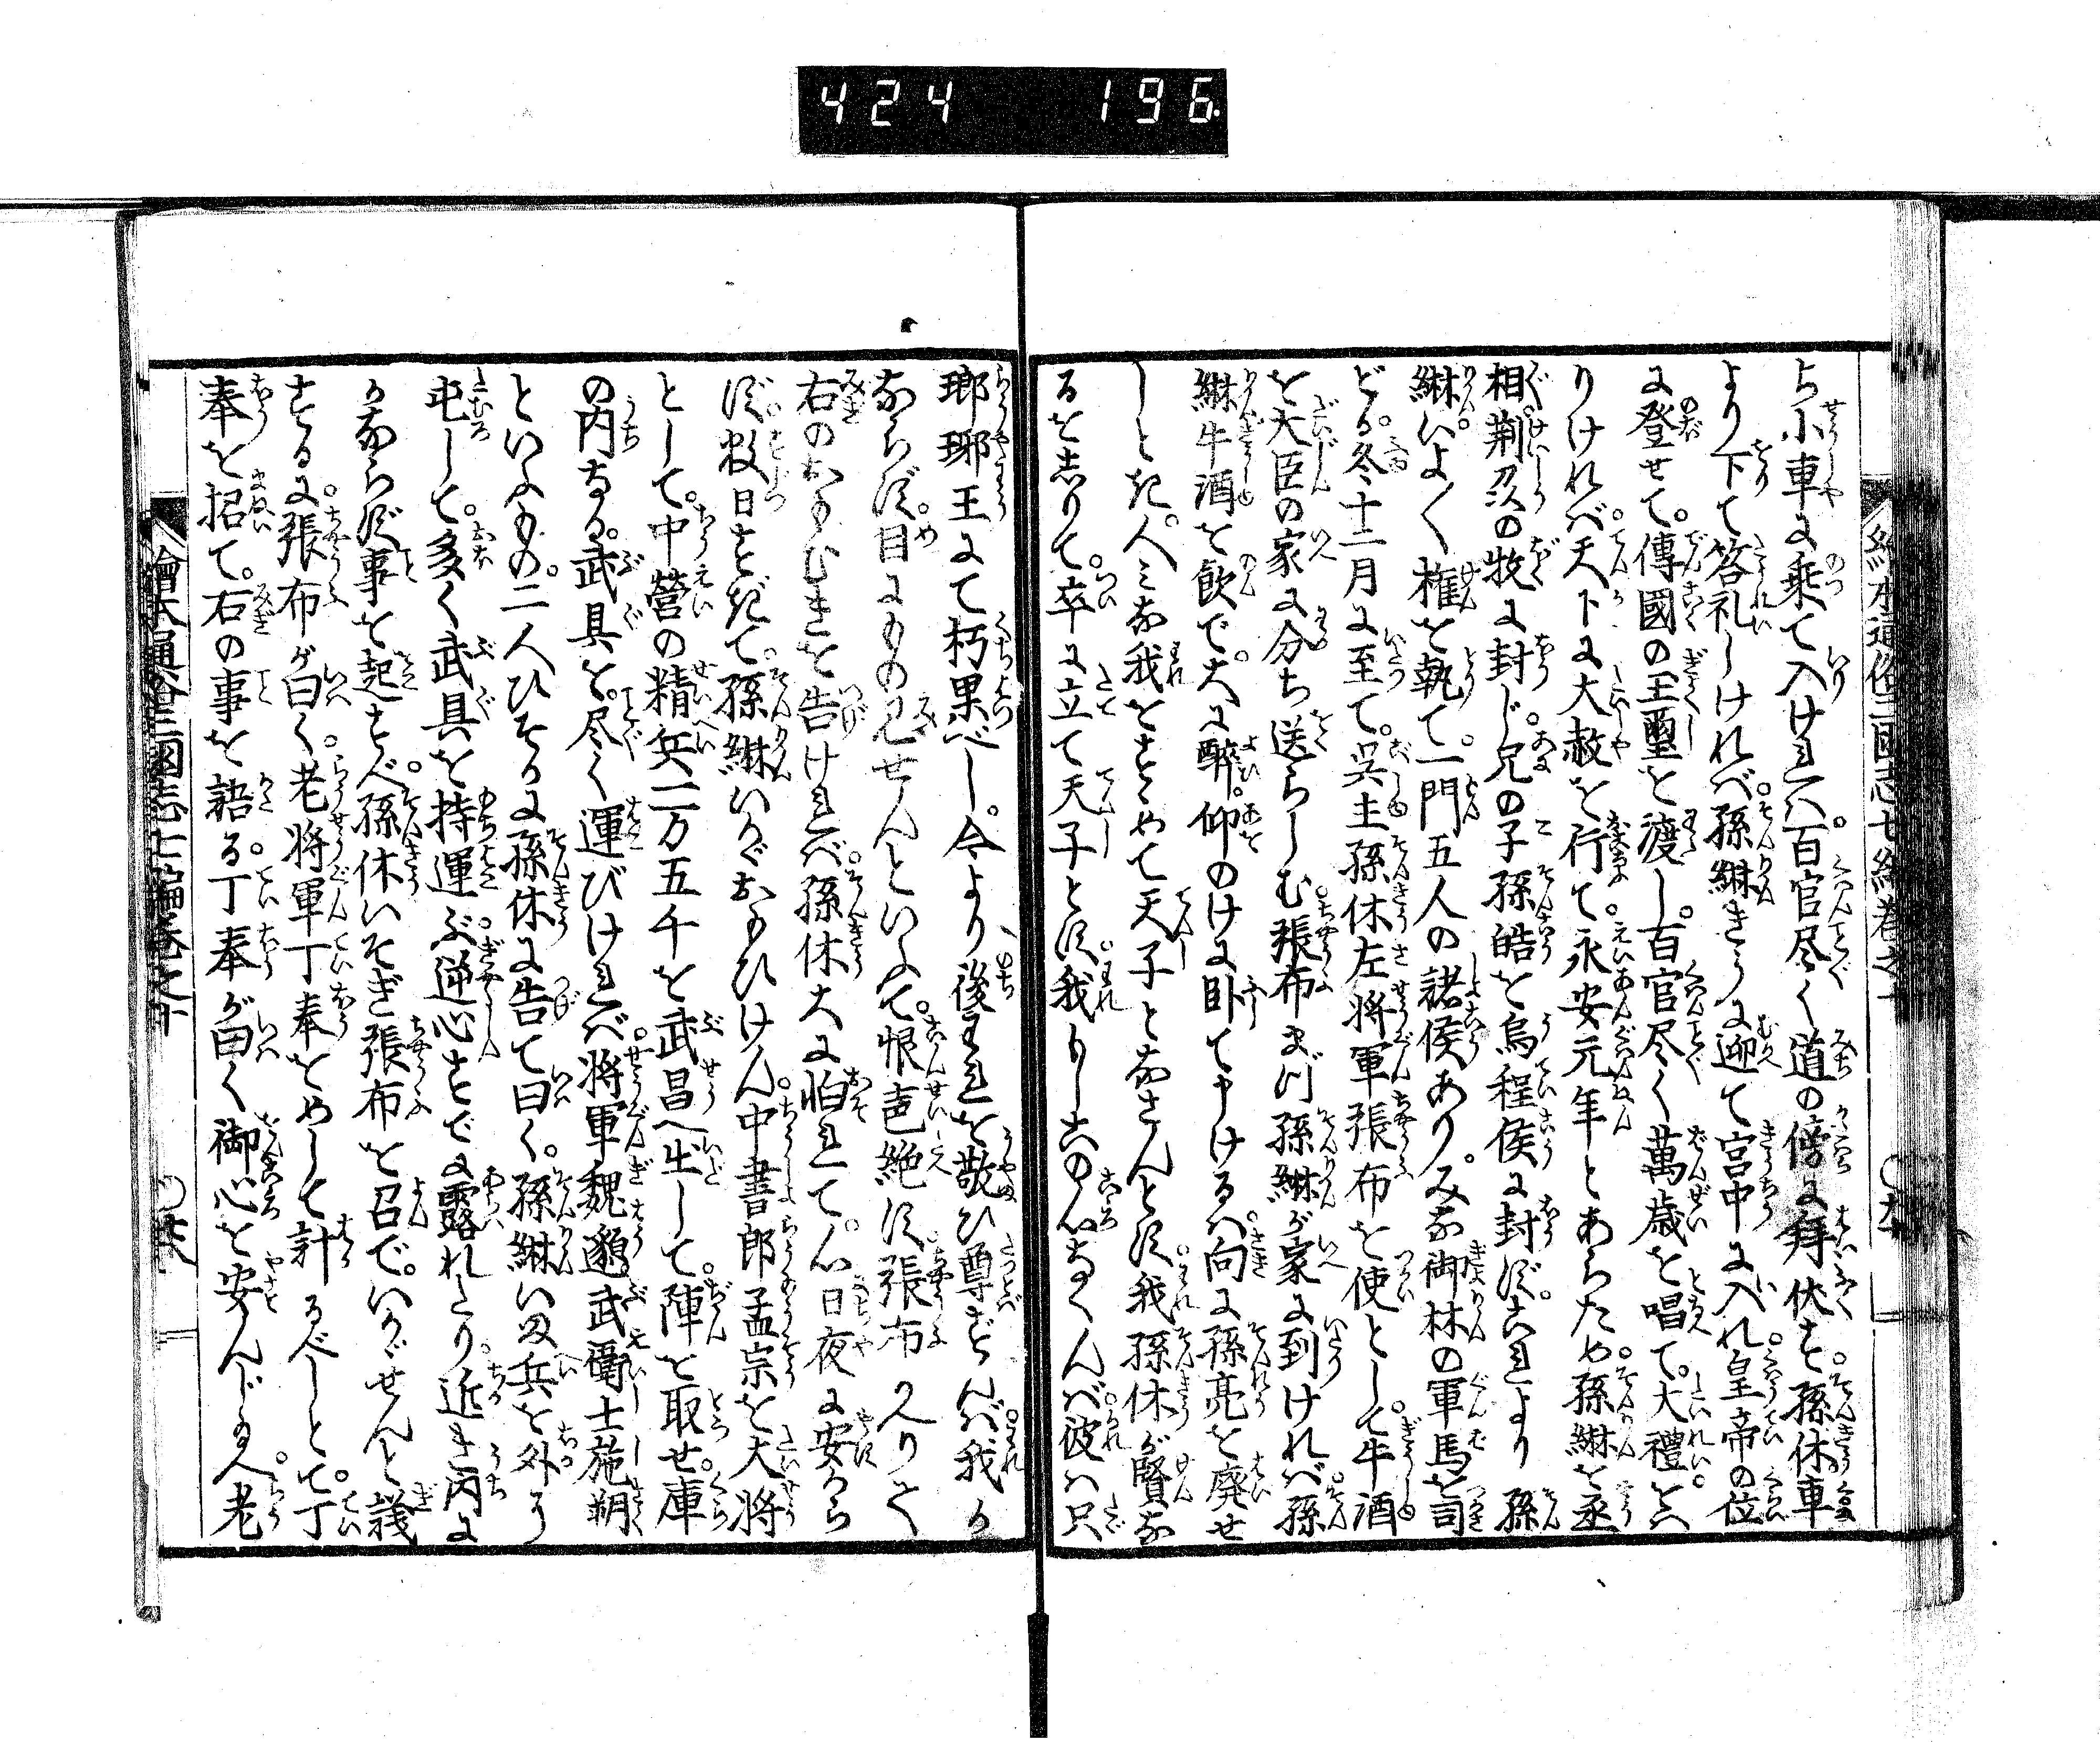 424 196
ち小車に乗て入ければ。百官尽く道の傍に拜伏す。孫休車
より下て答礼しければ。孫綝きうに迎て宮中に入れ。皇帝の位
に登せて。傳國の玉璽を渡し。百官尽く萬歳を唱て。大禮をへ
りければ。天下に大赦を行て。永安元年とあらため。孫綝を丞
相荆州の牧に封じ。兄の子孫皓を烏程侯に封ず。これより孫
綝いよ〳〵權を執て。一門五人の諸侯あり。みな御林の軍馬を司
どる。冬十二月に至て。呉主孫休左将軍張布を使として。牛酒
を大臣の家に分ち送らしむ。張布まづ孫綝が家に到ければ。孫
綝牛酒を飲で。大に醉。仰のけに卧て申けるハ。向に孫亮を廃せ
しとき。人みな我をすゝめて天子となさんとす。我孫休が賢な
るを志りて。卒に立て天子とす。我もしこの心なくんば。彼ハ只
瑯琊王にて朽果べし。今より後われを敬ひ尊ずんば。我か
ならず。目にもの見せんといふて。恨声絶ず。張布入りさく
右のおもむきを告ければ。孫休大に怕れて。心日夜に安から
ず。数日すぎて。孫綝いかゞおもひけん。中書郎孟宗を大将
として。中營の精兵一万五千を武昌へ出して。陣を取せ。庫
の内なる。武具を。尽く運びければ。将軍魏邈武衛士施朔
といふもの。二人ひそかに孫休に告て曰く。孫綝いま兵を外に
屯して。多く武具を持運ぶ。逆心すでに露れたり。近き内に
かならず事を起すべし。孫休いそぎ張布を召で。いかゞせんと議
するに。張布が曰く。老将軍丁奉をめして計るべしとて。丁
奉を招て。右の事を語る。丁奉が曰く。御心を安んじ玉へ。老
繪本通俗三國志七編巻之十